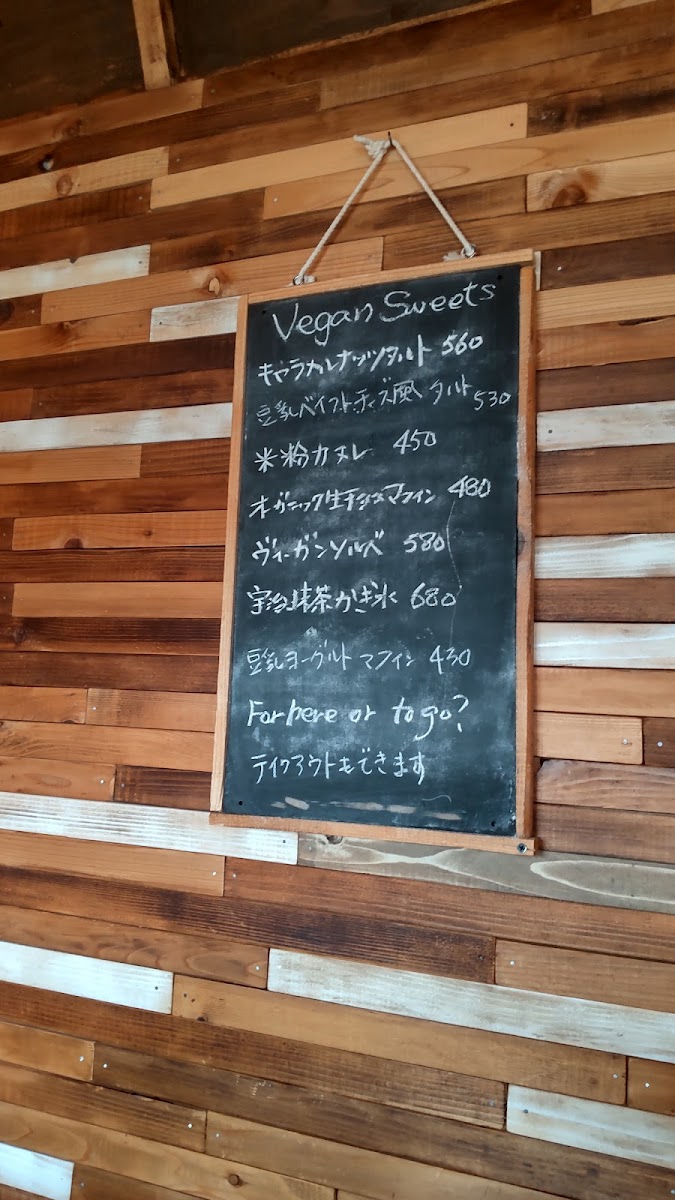 Vegan Sweets
キャラメルナッツタルト 560
豆乳ベイクドチーズ風タルト 530
米粉カヌレ 450
オーガニック生チョコマフィン 480
ヴィーガンソルベ 580
宇治抹茶かき氷 680
豆乳ヨーグルトマフィン 430
For here or to go?
テイクアウトもできます